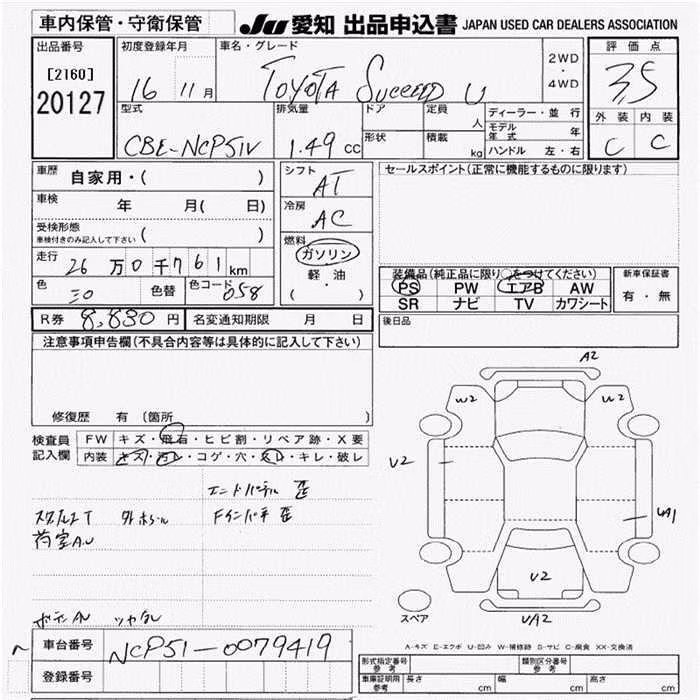 車内保管・守衛保管
JU 愛知 出品申込書 JAPAN USED CAR DEALERS ASSOCIATION
出品番号
[2160]
20127
初度登録年月
16 11月
車名・グレード
TOYOTA SUCCEED U
2WD
・
4WD
評価点
3,5
外装 内装
C C
型式
CBE-NCP51V
排気量
1.49 cc
ドア
形状
定員
人
積載
kg
ディーラー・並行
モデル年式 年
ハンドル 左・右
車歴 自家用・( )
車検 年 月( 日)
受検形態
車検付きのみ記入して下さい ( )
走行 26万0千761km
色 色替 色コード 058
シフト
AT
冷房
AC
燃料
ガソリン
軽・油
( )
セールスポイント(正常に機能するものに限ります)
装備品(純正品に限り○をつけてください)
PS PW エアB AW
SR ナビ TV カワシート
新車保証書
有・無
R券 8,830円 名変通知期限 月 日
後日品
注意事項申告欄(不具合内容等は具体的に記入して下さい)
修復歴 有 (箇所
検査員記入欄
FW キズ・飛石・ヒビ割・リペア跡・X要
内装 キズ・汚レ・コゲ・穴・スレ・キレ・破レ
エンドパネル 歪
Fインパネ 歪
荷室A.U
A2
W2 W2
U2
UA1
U2
U/A2
スペア
A-キズ E-エクボ U-凹み W-補修跡 S-サビ C-腐食 XX-交換済
車台番号 NCP51-0079419
登録番号
形式指定番号 参考
類別区分番号 参考
車庫証明用 参考 長さ cm 幅 cm 高さ cm